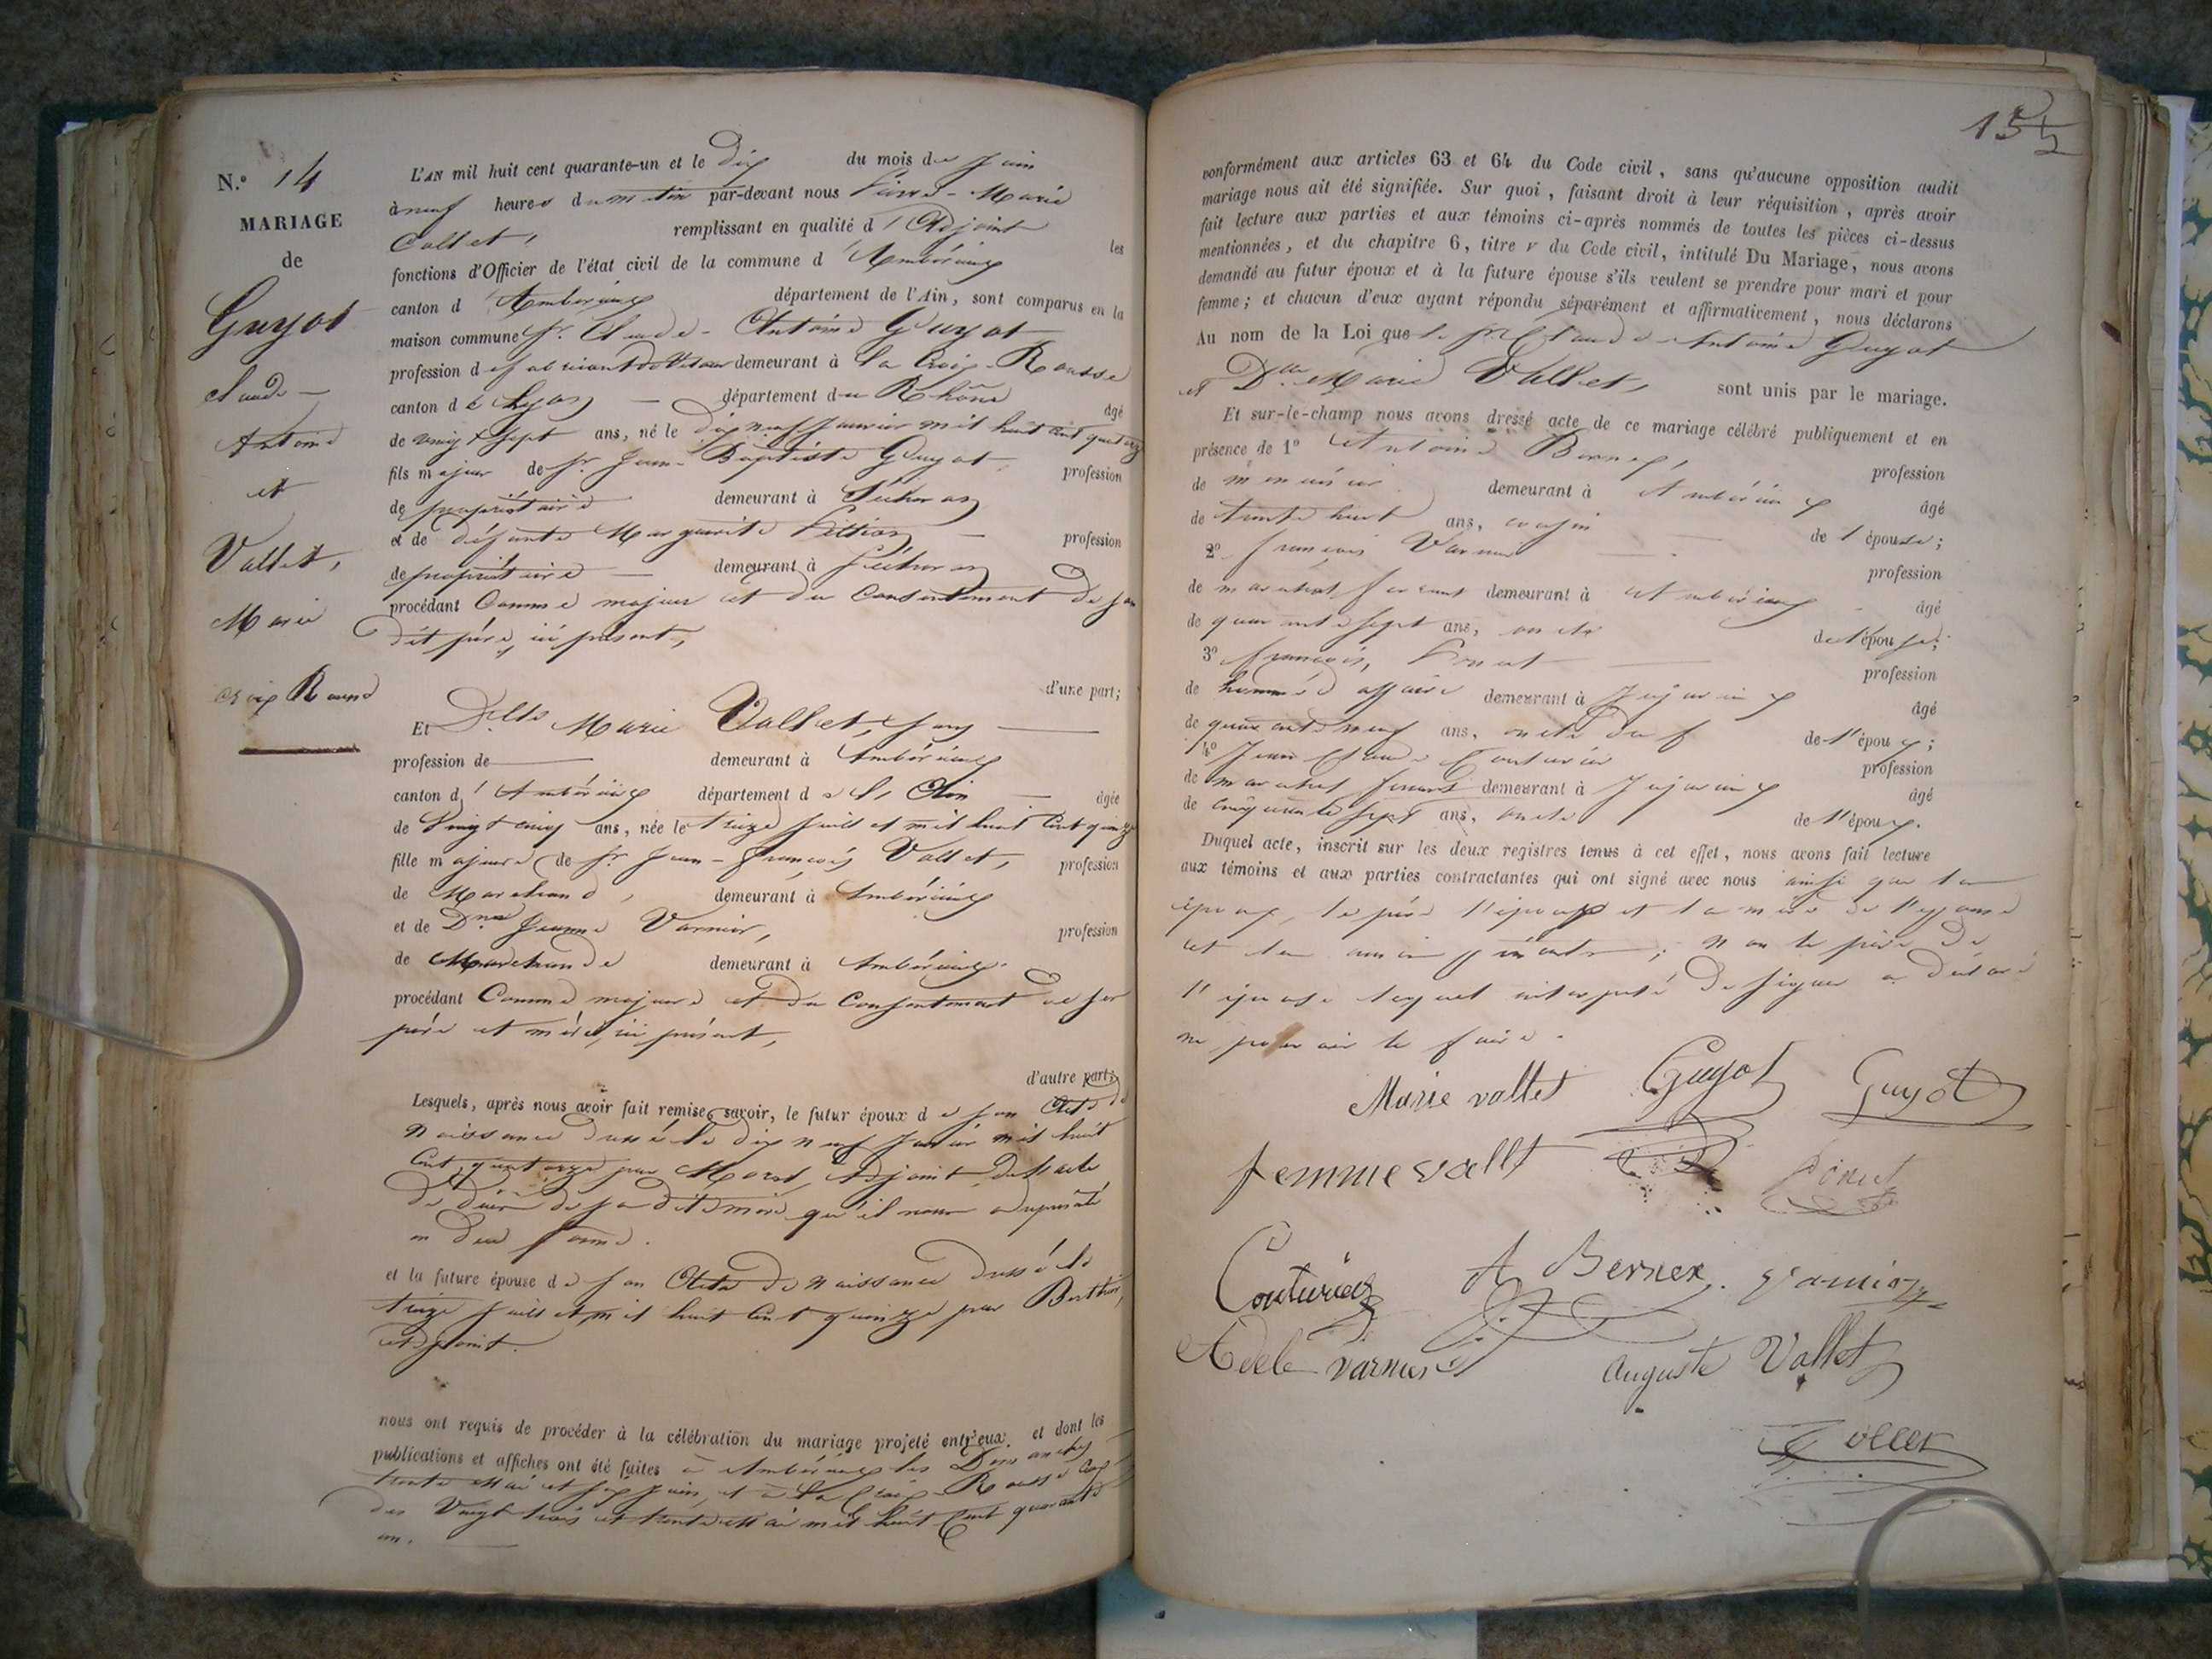 N.º 14
MARIAGE
de
Guyot
Claude-
Antoine
et
Vallet,
Marie
Croix Rousse
L'AN mil huit cent quarante-un et le dix du mois de juin
à neuf heures du matin par-devant nous Pierre-Marie
Collet, remplissant en qualité d'Adjoint les
fonctions d'Officier de l'état civil de la commune d'Ambérieux
canton d'Ambérieux département de l'Ain, sont comparus en la
maison commune Sr. Claude-Antoine Guyot
profession de fabricant demeurant à la Croix-Rousse
canton de Lyon département du Rhône âgé
de vingt sept ans, né le dix neuf janvier mil huit cent quatorze
fils majeur de Sr. Jean-Baptiste Guyot, profession
de propriétaire demeurant à
et de défunte Marguerite profession
de propriétaire demeurant à
procédant comme majeur et du consentement de son
dit père, ici présent,
d'une part;
Et Dlle Marie Vallet, sans
profession de demeurant à Ambérieux
canton d'Ambérieux département de l'Ain âgée
de vingt cinq ans, née le treize juillet mil huit cent quinze
fille majeure de Sr. Jean-François Vallet, profession
de Marchand, demeurant à Ambérieux
et de Dme Jeanne Varnier, profession
de Marchande demeurant à Ambérieux.
procédant comme majeure et du consentement de ses
père et mère, ici présent,
d'autre part;
Lesquels, après nous avoir fait remise, savoir, le futur époux de son acte de
naissance dressé le dix neuf janvier mil huit
cent quatorze par Adjoint, de l'acte
de décès de sa dite mère qu'il nous a représenté
en due forme.
et la future épouse de son acte de naissance dressé le
treize juillet mil huit cent quinze par
adjoint.
nous ont requis de procéder à la célébration du mariage projeté entr'eux, et dont les
publications et affiches ont été faites à Ambérieux les Dimanches
trente mai et six juin, et à la Croix-Rousse
des vingt trois et trente mai mil huit cent quarante
un.
conformément aux articles 63 et 64 du Code civil, sans qu'aucune opposition audit
mariage nous ait été signifiée. Sur quoi, faisant droit à leur réquisition, après avoir
fait lecture aux parties et aux témoins ci-après nommés de toutes les pièces ci-dessus
mentionnées, et du chapitre 6, titre v du Code civil, intitulé Du Mariage, nous avons
demandé au futur époux et à la future épouse s'ils veulent se prendre pour mari et pour
femme; et chacun d'eux ayant répondu séparément et affirmativement, nous déclarons
Au nom de la Loi que le Sr. Claude-Antoine Guyot
et Dlle Marie Vallet, sont unis par le mariage.
Et sur-le-champ nous avons dressé acte de ce mariage célébré publiquement et en
présence de 1º Antoine Bernex, profession
de menuisier demeurant à Ambérieux âgé
de trente huit ans, cousin de l'épouse;
2º François Varnier profession
de maréchal ferrant demeurant à Ambérieux âgé
de quarante sept ans, oncle de l'épouse;
3º François Ponet profession
de homme d'affaire demeurant à Jujurieux âgé
de quarante neuf ans, oncle de l'époux;
4º Jean Claude Couturier profession
de maréchal ferrant demeurant à Jujurieux âgé
de cinquante sept ans, oncle de l'époux.
Duquel acte, inscrit sur les deux registres tenus à cet effet, nous avons fait lecture
aux témoins et aux parties contractantes qui ont signé avec nous ainsi que les
époux, le père l'époux et la mère de l'épouse
et les amis présents; non le père de
l'épouse lequel interpelé de signer a déclaré
ne pouvoir le faire.
Marie vallet Guyot Guyot
femme vallt Ponet
Couturier A Bernex. Varnier
Adele varnier auguste Vallet
Collet